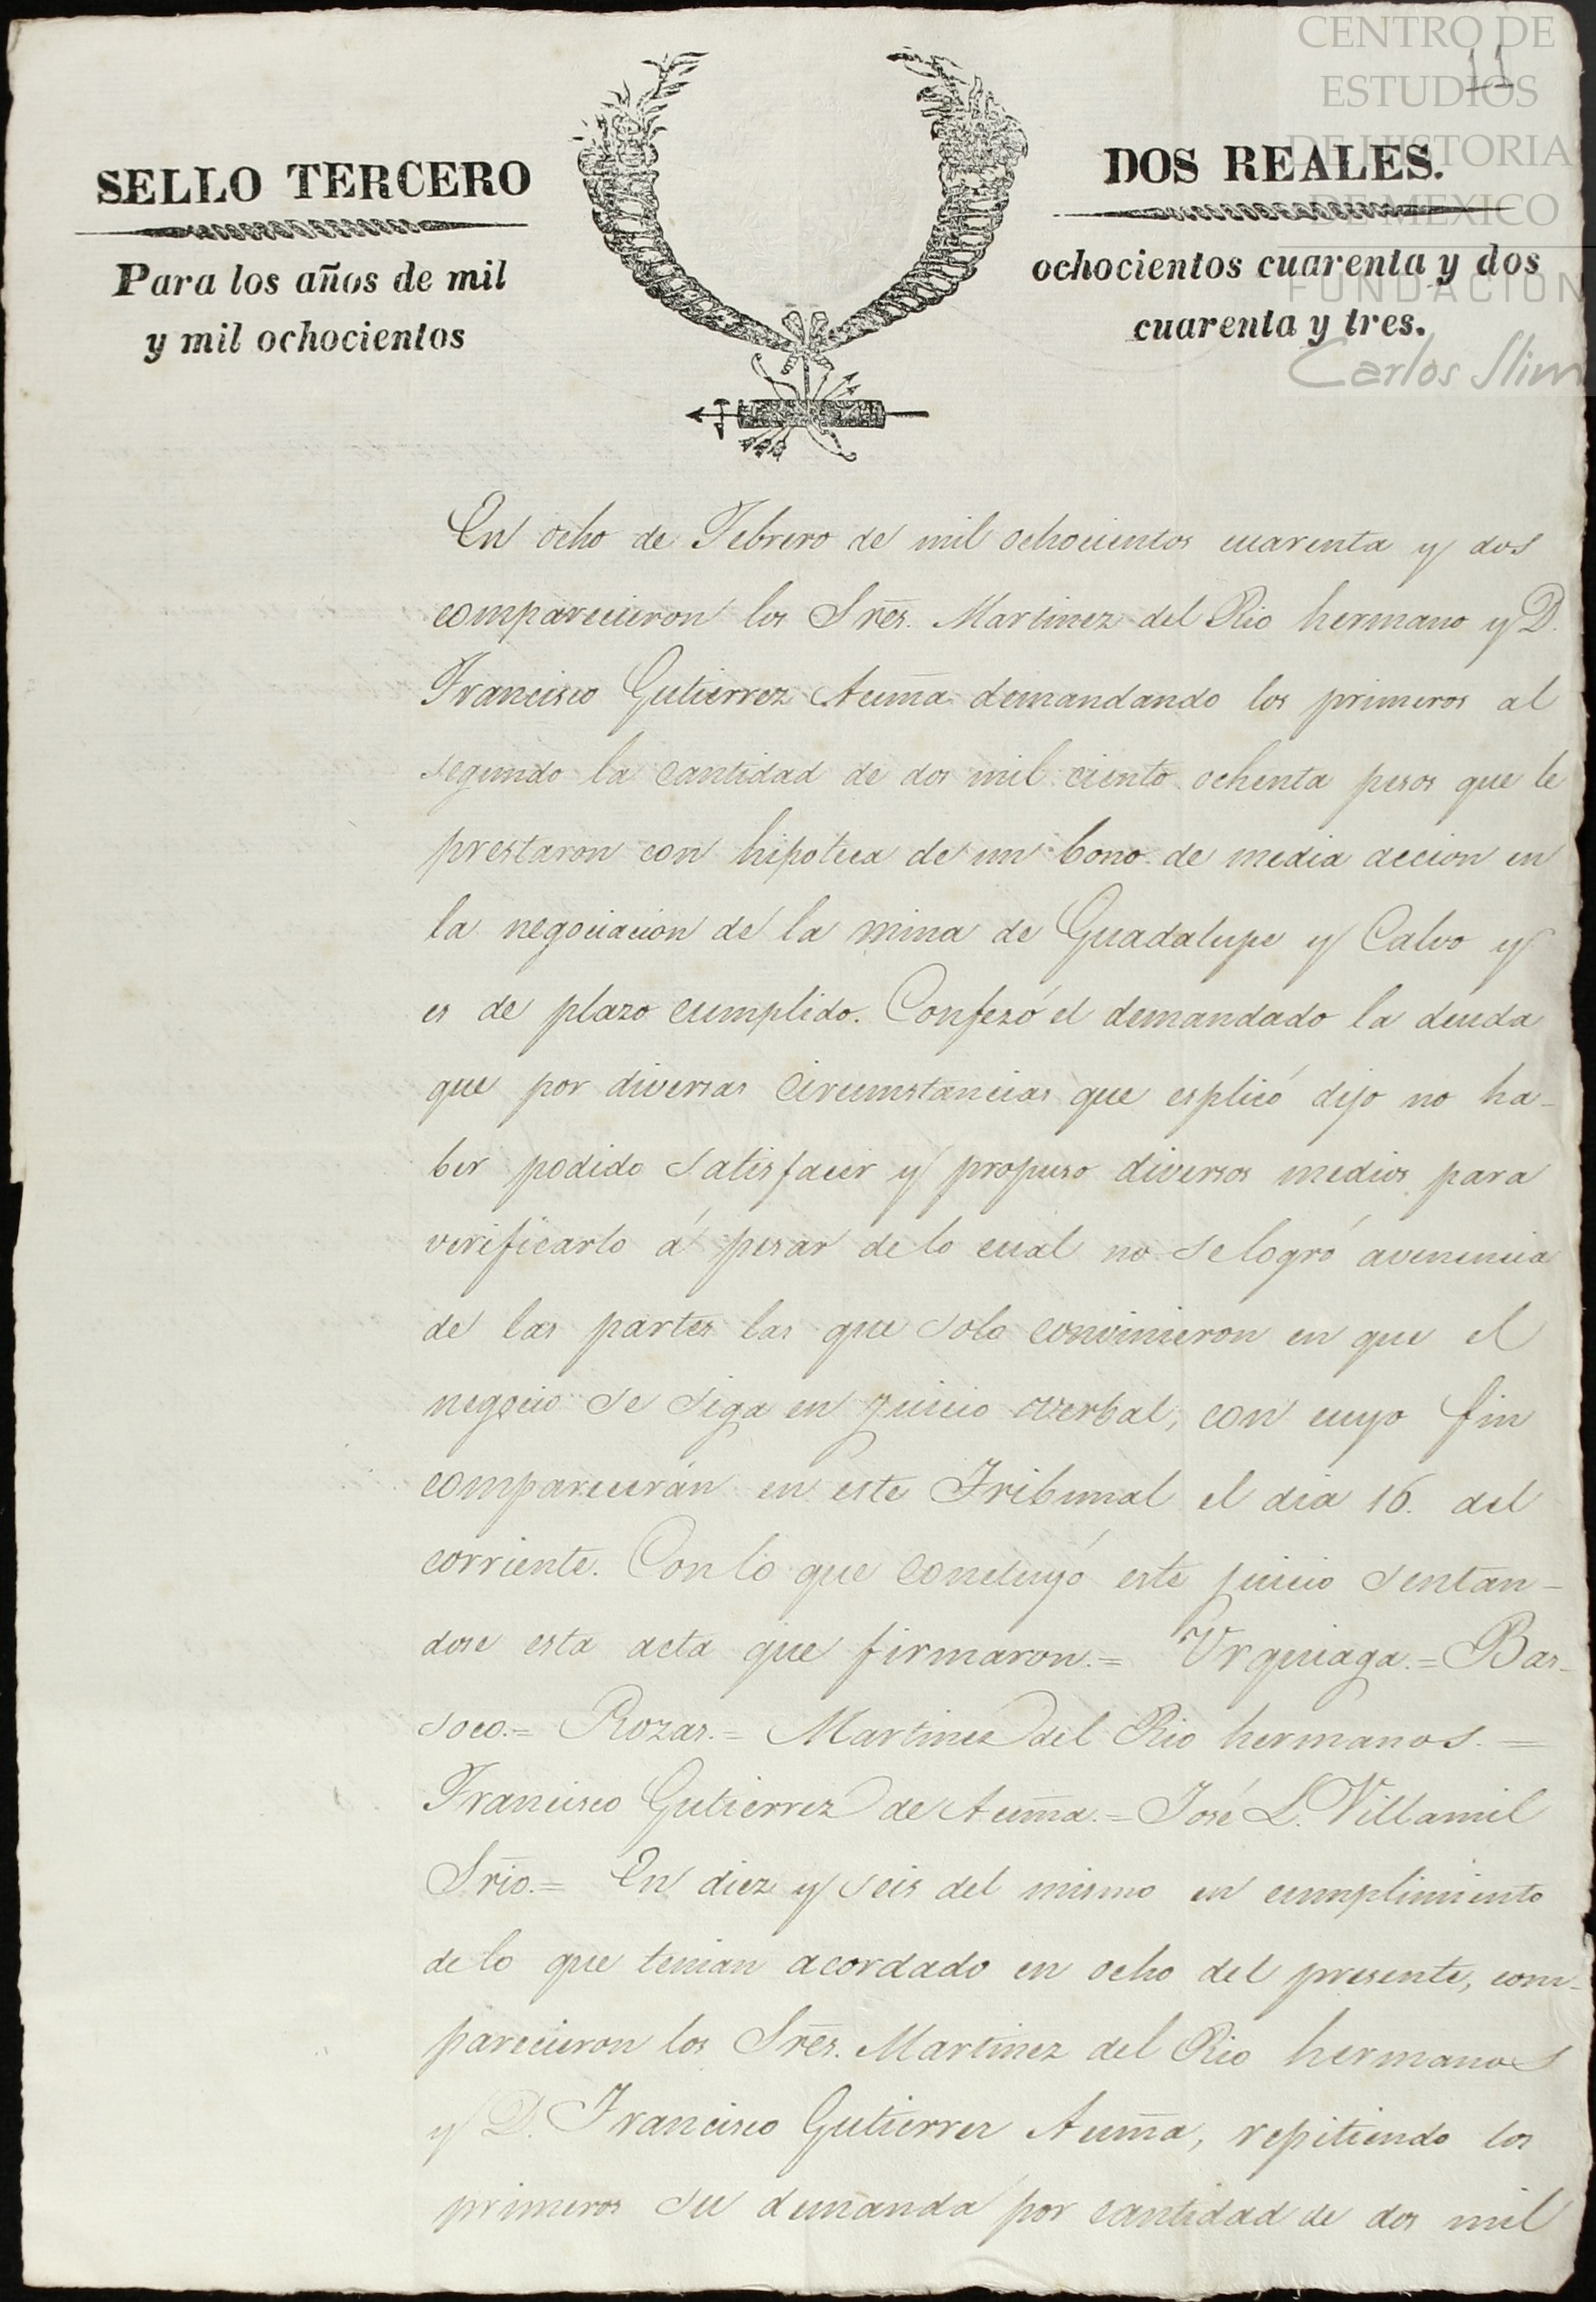 CENTRO DE
ESTUDIOS
DE HISTORIA
DE MEXICO
FUNDACION
Carlos Slim
11
SELLO TERCERO
DOS REALES.
Para los años de mil
ochocientos cuarenta y dos
y mil ochocientos
cuarenta y tres.
En ocho de Febrero de mil ochocientos cuarenta y dos
comparecieron los Sres. Martinez del Rio hermano y D.
Francisco Gutierrez Acuña demandando los primeros al
segundo la cantidad de dos mil ciento ochenta pesos que le
prestaron con hipoteca de un bono de media accion en
la negociacion de la mina de Guadalupe y Calvo y
es de plazo cumplido. Confesó el demandado la deuda
que por diversas circumstancias que esplicó dijo no ha-
ber podido satisfacer y propuso diversos medios para
verificarlo á pesar de lo cual no se logró avenencia
de las partes las que solo convinieron en que el
negocio se siga en juicio verbal, con cuyo fin
comparecerán en este Tribunal el dia 16. del
corriente. Con lo que concluyó este juicio sentan-
dose esta acta que firmaron.= Urquiaga.= Bas-
soco.= Rozas.= Martinez del Rio hermanos.=
Francisco Gutierrez de Acuña.= José L. Villamil
Srio.= En diez y seis del mismo en cumplimiento
de lo que tenian acordado en ocho del presente, com-
parecieron los Sres. Martinez del Rio hermanos
y D. Francisco Gutierrez Acuña, repitiendo los
primeros su demanda por cantidad de dos mil